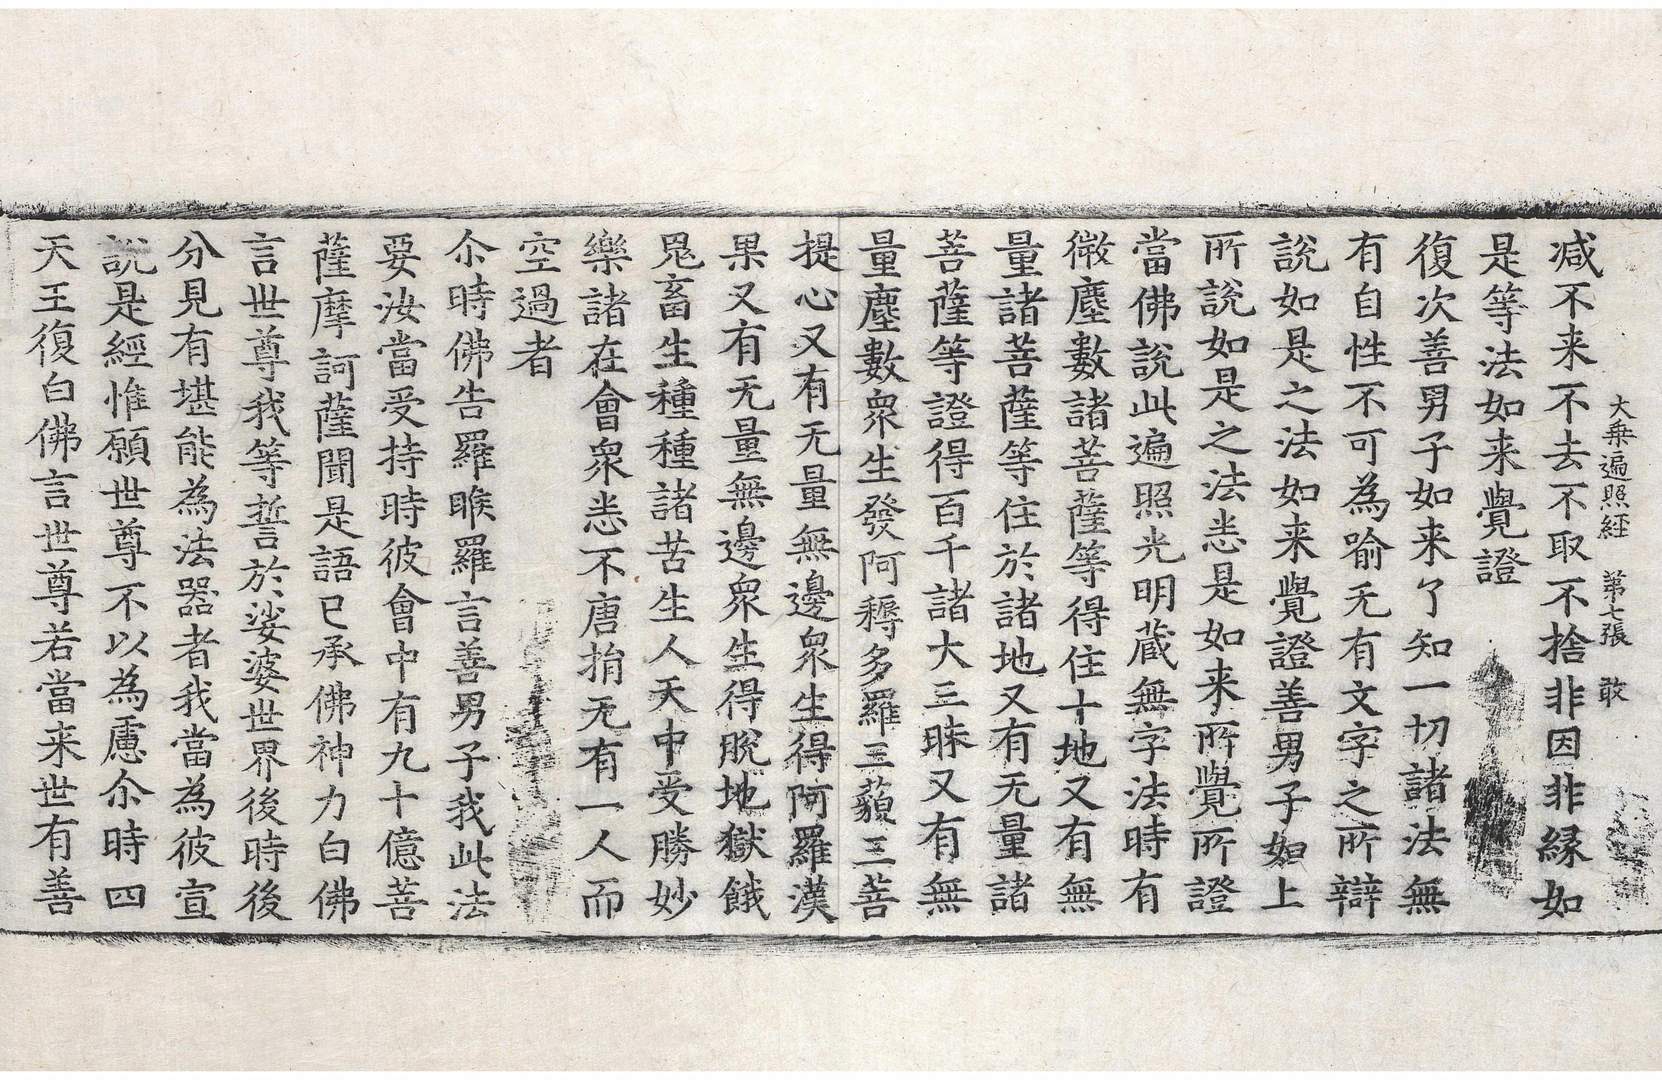 大乗遍照経　第七張　敢
减不来不去不取不捨非因非緣如
是等法如来覺證
復次善男子如来了知一切諸法無
有自性不可為喻无有文字之所辯
說如是之法如来覺證善男子如上
所說如是之法悉是如来所覺所證
當佛說此遍照光明蔵無字法時有
微塵數諸菩薩等得住十地又有無
量諸菩薩等住於諸地又有无量諸
菩薩等證得百千諸大三昧又有無
量塵數眾生發阿耨多羅三藐三菩
提心又有无量無邊眾生得阿羅漢
果又有无量無邊眾生得脫地獄餓
鬼畜生種種諸苦生人天中受勝妙
樂諸在會眾悉不唐捐无有一人而
空過者
尒時佛告羅睺羅言善男子我此法
要汝當受持時彼會中有九十億菩
薩摩訶薩聞是語已承佛神力白佛
言世尊我等誓於娑婆世界後時後
分見有堪能為法器者我當為彼宣
說是經惟願世尊不以為慮尒時四
天王復白佛言世尊若當来世有善